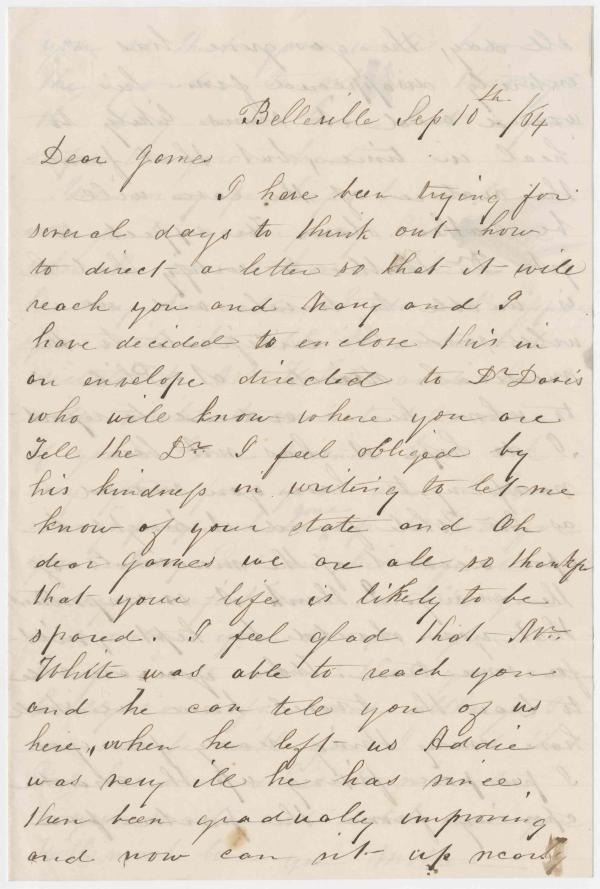 Belleville Sep 10th /64
Dear James
I have been trying for
several days to think out how
to direct a letter so that it will
reach you and Mary and I
have decided to enclose this in
an envelope directed to Dr Davis
who will know where you are
Tell the Dr. I feel obliged by
his kindness in writing to let me
know of your state and Oh
dear James we are all so thankfu
that your life is likely to be
spared. I feel glad that Mr.
White was able to reach you
and he can tell you of us
here, when he left us Addie
was very ill he has since
then been gradually improving
and now can sit up nearly